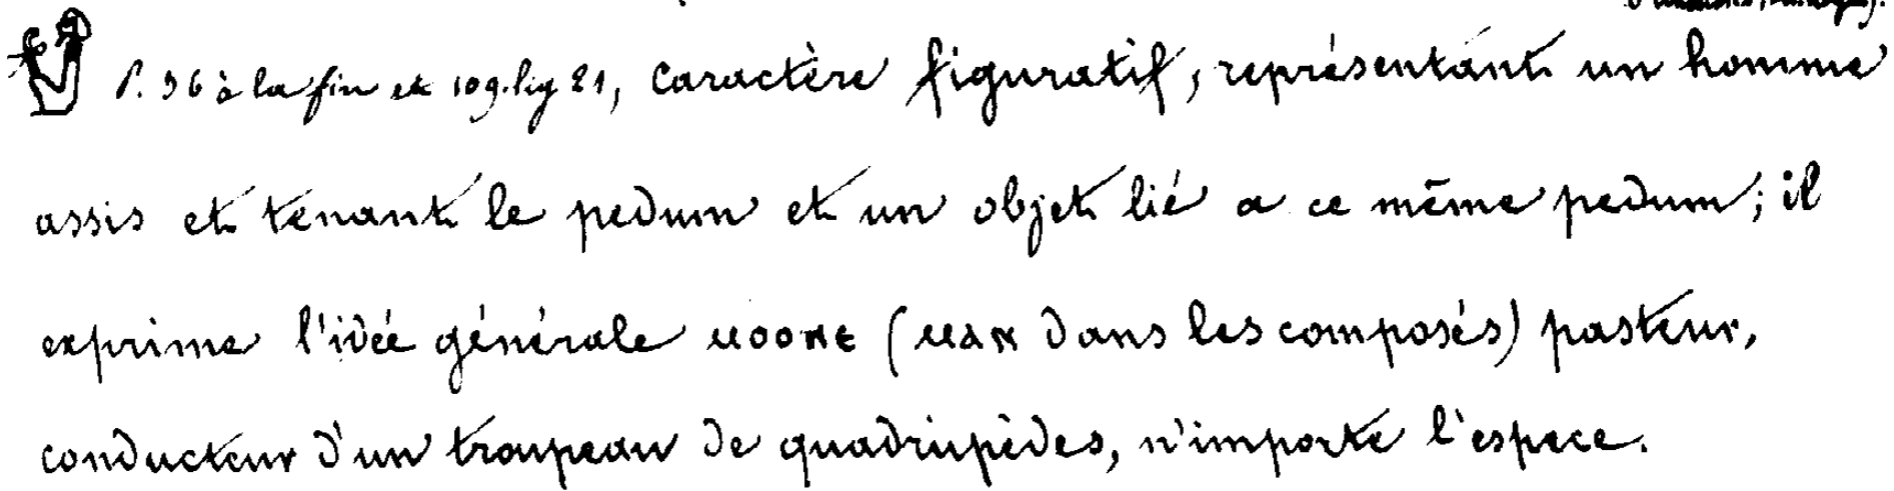 P. 36 à la fin et 109. lig 21, caractère figuratif, représentant un homme
assis et tenant le pedum et un objet lié a ce même pedum; il
exprime l'idée générale ⲙⲟⲟⲛⲉ (ⲙⲁⲛ dans les composés) pasteur,
conducteur d'un troupeau de quadrupèdes, n'importe l'espece.